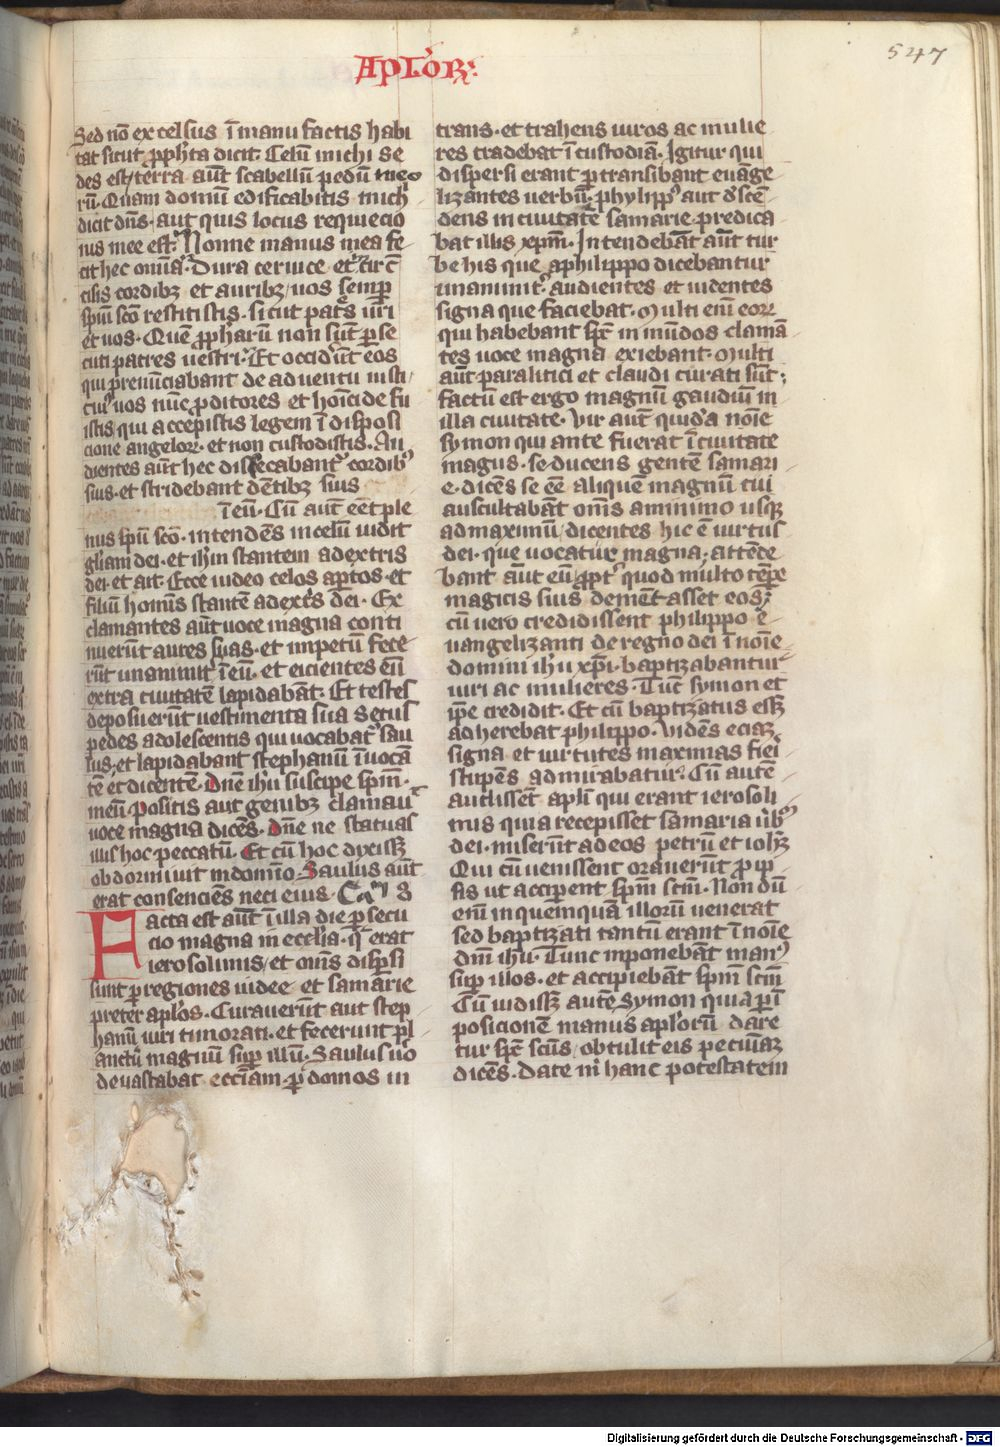 Aplōr̄:
547
Sed nō excelsus ī manu factis habi
tat sicut ꝓph̄ta dicit. Celū michi se
des est, terra aūt scabellū pedū meo
rū. Quam domū edificabitis mich'
dicit dn̄s. aut quis locus requiecio
nis mee est. Nonne manus mea fe
cit hec omīa. Dura ceruice et īcircū
cisis cordibꝫ et auribꝫ, uos semꝑ
spm̄ scō restitistis. sicut patꝰs uri
et uos. Quē ꝓpharū non sūt ꝑse
cuti patres uestri. Et occidūt eos
qui prenūciabant de aduentu iusti
ciuꝰ uos nūc ꝓditores et hoīcide fu
istis qui accepistis legem ī disposi
cione angelorꝫ. et non custodistis. Au
dientes aūt hec dissecabantꝰ cordibꝰ
suis. et stridebant dētibꝫ suis
ī eū. Cū aut eēt ple
nus spū scō. intendēs in celū uidit
glīam dei. et ih̄m stantem a dextris
dei. et ait. Ecce uideo celos aptos. et
filiū homīs stantē a dextꝰs dei. Ex
clamantes aūt uoce magna conti
nuerūt aures suas. et impetū fece
rūt unanimitꝰ ī eū. et eicientes eū
extra ciuitatē lapidabāt. Et testes
deposuerūt uestimenta sua secus
pedes adolescentis qui uocabatꝰ sau
lus, et lapidabant stephanū īuocā
tē et dicentē. Dn̄e ih̄u suscipe spm̄.
meū. Positis aut genibꝫ clamauͭ
uoce magna dicēs. Dn̄e ne statuas
illis hoc peccatū. Et cū hoc dixissꝫ
obdormiuit in domīo. Saulus aūt
erat consenciēs neci eius. Caᵐ 8
Facta est aūt ī illa die ꝑsecu
cio magna in ecclīa. q̄ erat
ierosolimis, et om̄s disꝑsi
sunt ꝑ regiones iudee et samarie
preter apl̄os. Curauerūt aut step
hanū uiri timorati. et fecerunt pl
anctū magnū suꝑ illū. Saulus uō
deuastabat eccīam. ꝑ domos in
trans. et trahens uiros ac mulie
res tradebat ī custodiā. Igitur qui
dispersi erant ꝑtransibant euāge
lizantes uerbū. phylippꝰ aut dꝰscē
dens in ciuitatē samarie. predica
bat illis xp̄m. Intendebāt aūt tur
be his que a philippo dicebantur
unanimitꝰ audientes et uidentes
signa que faciebat. Multi eni eorꝫ
qui habebant spc̄ in mūdos clamā
tes uoce magna exiebant. Multi
aūt paralitici et claudi curati sūt;
factū est ergo magnū gaudiū in
illa ciuitate. Vir aūt quidā noīe
symon qui ante fuerat ī ciuitate
magus. seducens gentē samari
e. dicēs se eē aliquē magnū cui
auscultabāt om̄s a minimo usqꝫ
ad maximū, dicentes hic ē uirtus
dei. que uocatur magna, attēde
bant aūt eū ꝓptꝰ quod multo tēpꝰe
magicis suis demētasset eos.
cū uero credidissent philippo e
uangelizanti de regno dei ī noīe
domini ih̄u xp̄i. baptizabantur
uiri ac mulieres. Tūc symon et
ip̄e credidit. Et cū baptizatus essꝫ
adherebat philippo. Vidēs eciaꝫ
signa et uirtutes maximas fieri
stupēs admirabatur. Cū autē
audissēt apl̄i qui erant ierosoli
mis quia recepisset samaria ūbꝰ
dei. miserūt ad eos petrū et ioh̄ꝫ
Qui cū uenissent orauerūt ꝓ ip
sis ut acciperent spm̄ scm̄. Non dū
enī in quemquā illorū uenerat
sed baptizati tantū erant ī noīe
dn̄i ih̄u. Tunc inponebāt manꝰ
suꝑ illos. et accipiebāt spm̄ scm̄
Cū uidissꝫ autē symon quia ꝑ ī
posicionē manus apl̄orū dare
tur spc̄ scūs, obtulit eis pecuniaꝫ
dicēs. Date m̄ hanc potestatem
Digitalisierung gefördert durch die Deutsche Forschungsgemeinschaft - DFG